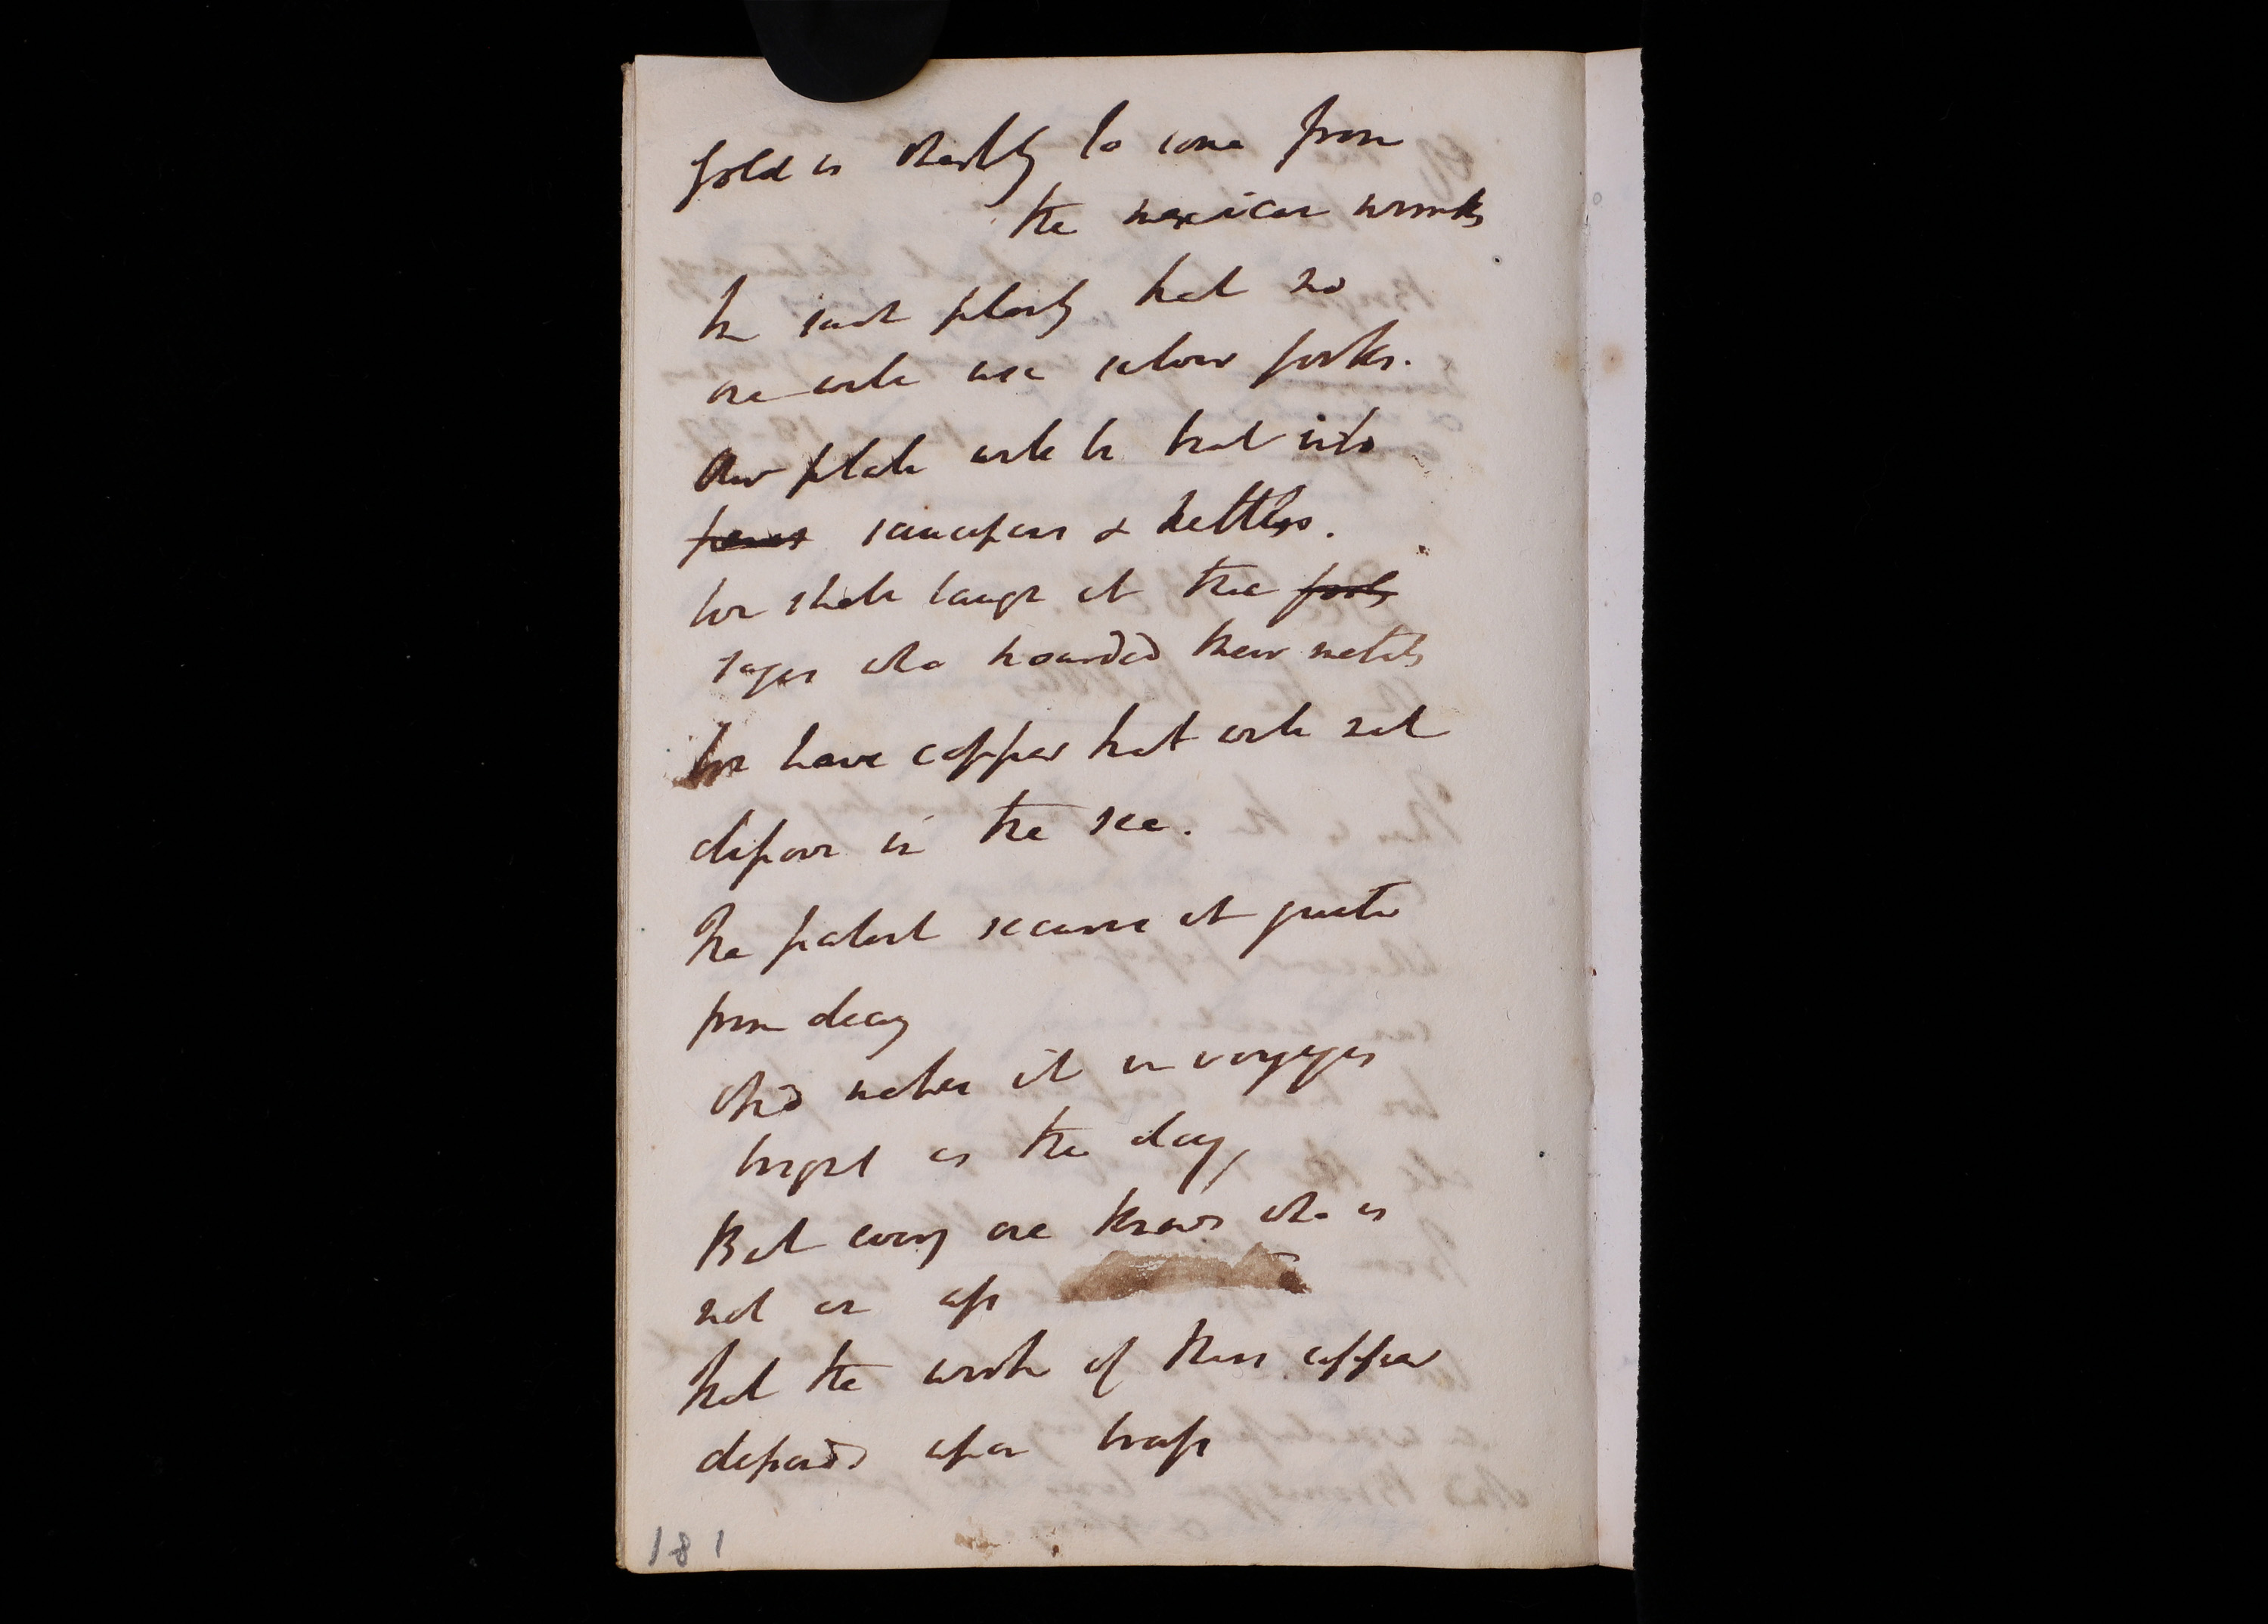 Gold is shortly to come from
the mexican mines
In such plenty that no
one will use silver forks.
Our plate will be beat into
pans saucepans & kettles.
We shall laugh at the fools
sages who hoarded their metals
We have copper that will not
dissolve in the sea.
The patent secures it quite
from decay
And makes it in voyages
bright as the day,
But every one knows who is
not an ass
That the worth of this copper
depends upon brass
181